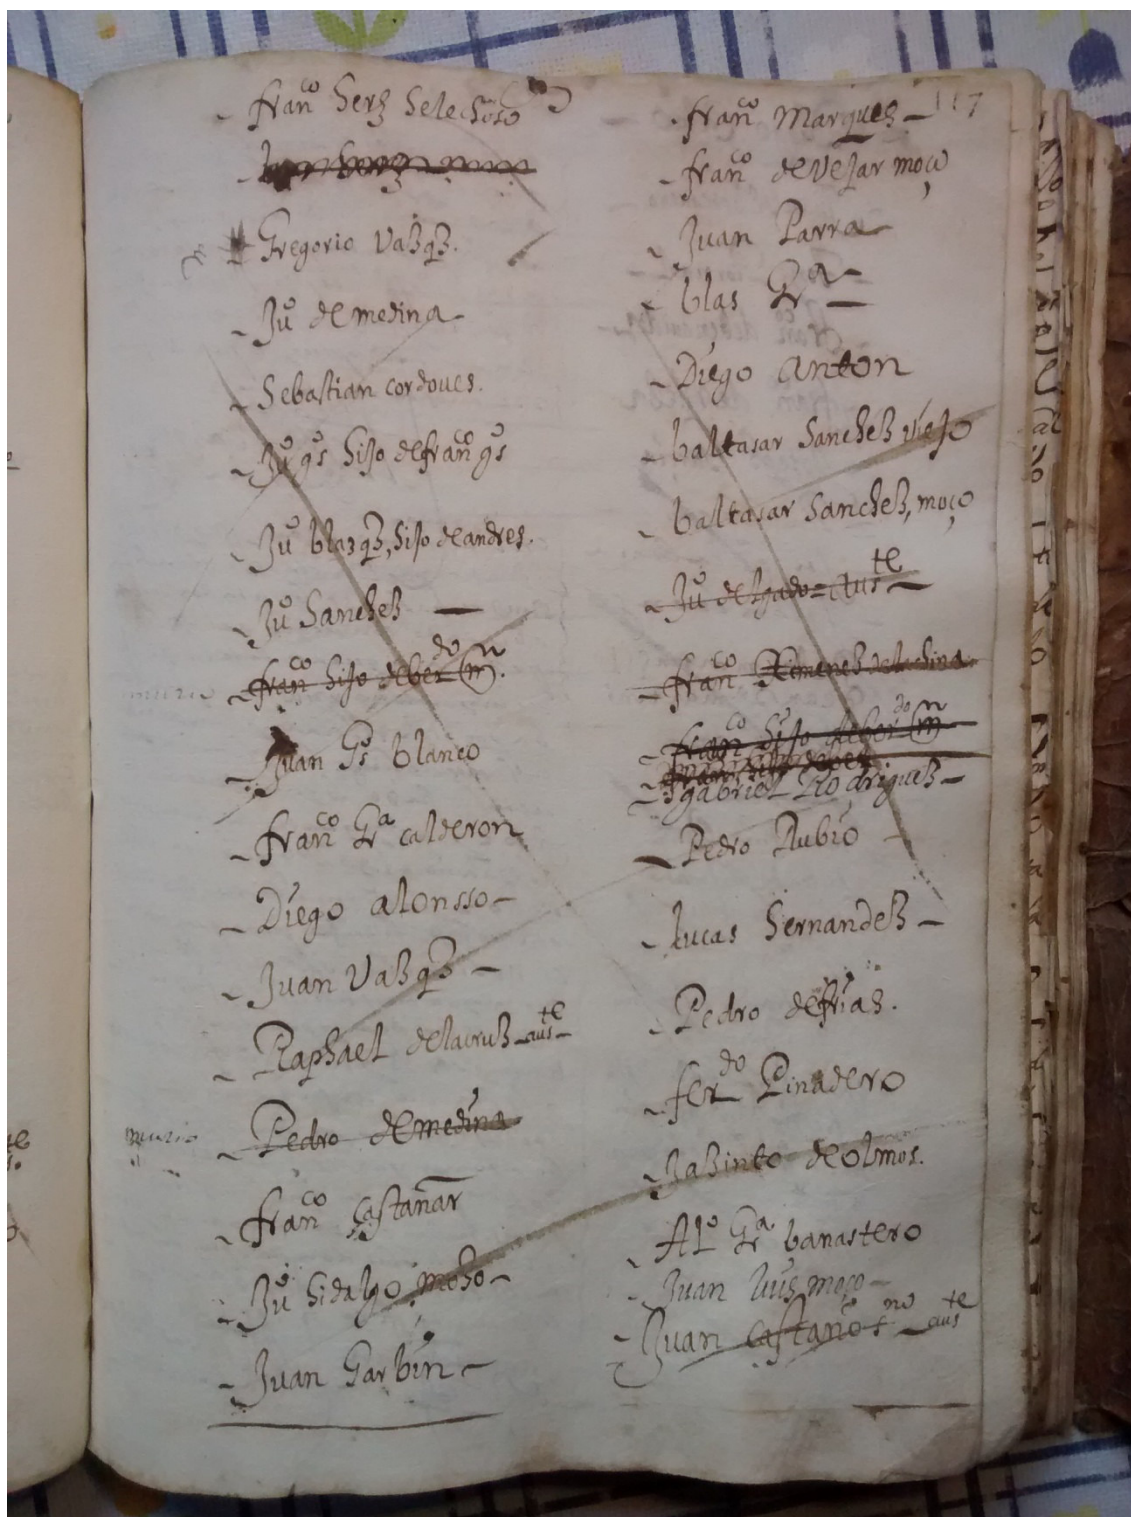 franco Herz helechoso
Gregorio Vazqz.
Juo de medina
Sebastian cordoues.
Juo gs hijo de franco gs
Juo blazqz, hijo de andres.
Juo Sanchez
murio franco hijo de berdo mn.
Juan Gs blanco
franco Gra calderon
Diego alonsso
Juan Vazqz
Raphael de la cruz auste
murio Pedro de medina
franco castañar
Juo hidalgo moço
Juan Garbin
117
franco Marques
franco de Vejar moço
Juan Parra
blas Gra
Diego Anton
baltasar Sanchez viejo
baltasar Sanchez, moço
Juo delgado auste
franco Ximenez de la china
franco hijo de berdo mn
gabriel Rodriguez
Pedro Rubio
Lucas Hernandez
Pedro de frias.
ferdo Pinadero
Jazinto de olmos.
Alo Gra banastero
Juan luis moço
Juan castaño auste